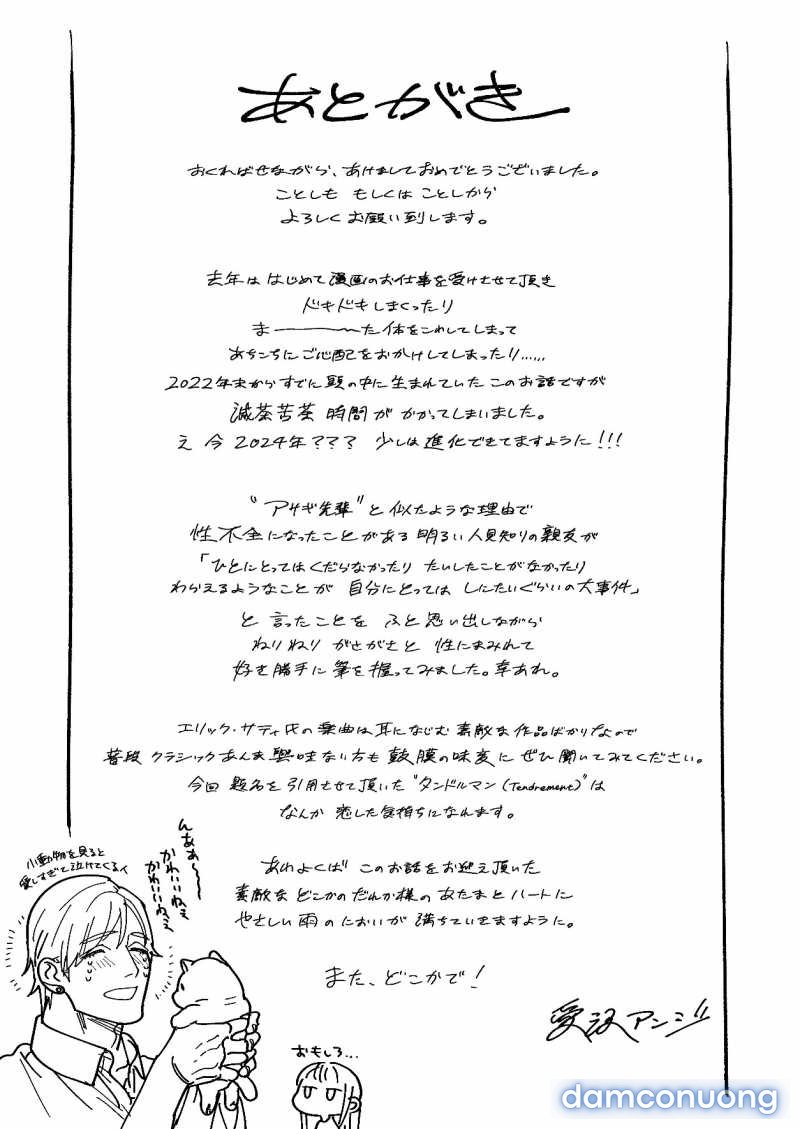 あとがき
おくればせながら、あけましておめでとうございました。
ことしも もしくは ことしから
よろしく お願い到します。
去年は はじめて 漫画のお仕事を受けさせて頂き
ドキドキしまくったり
ま———〜た体をこわしてしまって
あちこちに ご心配をおかけしてしまったり……
2022年末からすでに頭の中に生まれていた このお話ですが
滅茶苦茶 時間が かかってしまいました。
え 今 2024年??? 少しは進化できてますように!!!
“アサギ先輩”と似たような理由で
性不全になったことがある 明るい人見知りの親友が
「ひとにとってはくだらなかったり たいしたことがなかったり
わらえるようなことが 自分にとっては しにたいぐらいの大事件」
と 言ったことを ふと思い出しながら
ねりねり がさがさと 性にまみれて
好き勝手に筆を握ってみました。幸あれ。
エリック・サティ氏の楽曲は耳になじむ素敵な作品ばかりなので
普段 クラシックあんま興味ない方も 鼓膜の味変に ぜひ聞いてみてください。
今回 題名を引用させて頂いた“タンドルマン(Tendrement)”は
なんか 恋した気持ちになれます。
あわよくば このお話をお迎え頂いた
素敵な どこかのだれか様の あたまとハートに
やさしい雨のにおいが 満ちていきますように。
また、どこかで!
愛沢アンジ
小動物を見ると
愛しすぎて泣けてくるイ
んああ〜〜
かわいいねぇ
かわいいねぇ
おもしろ...
damconuong